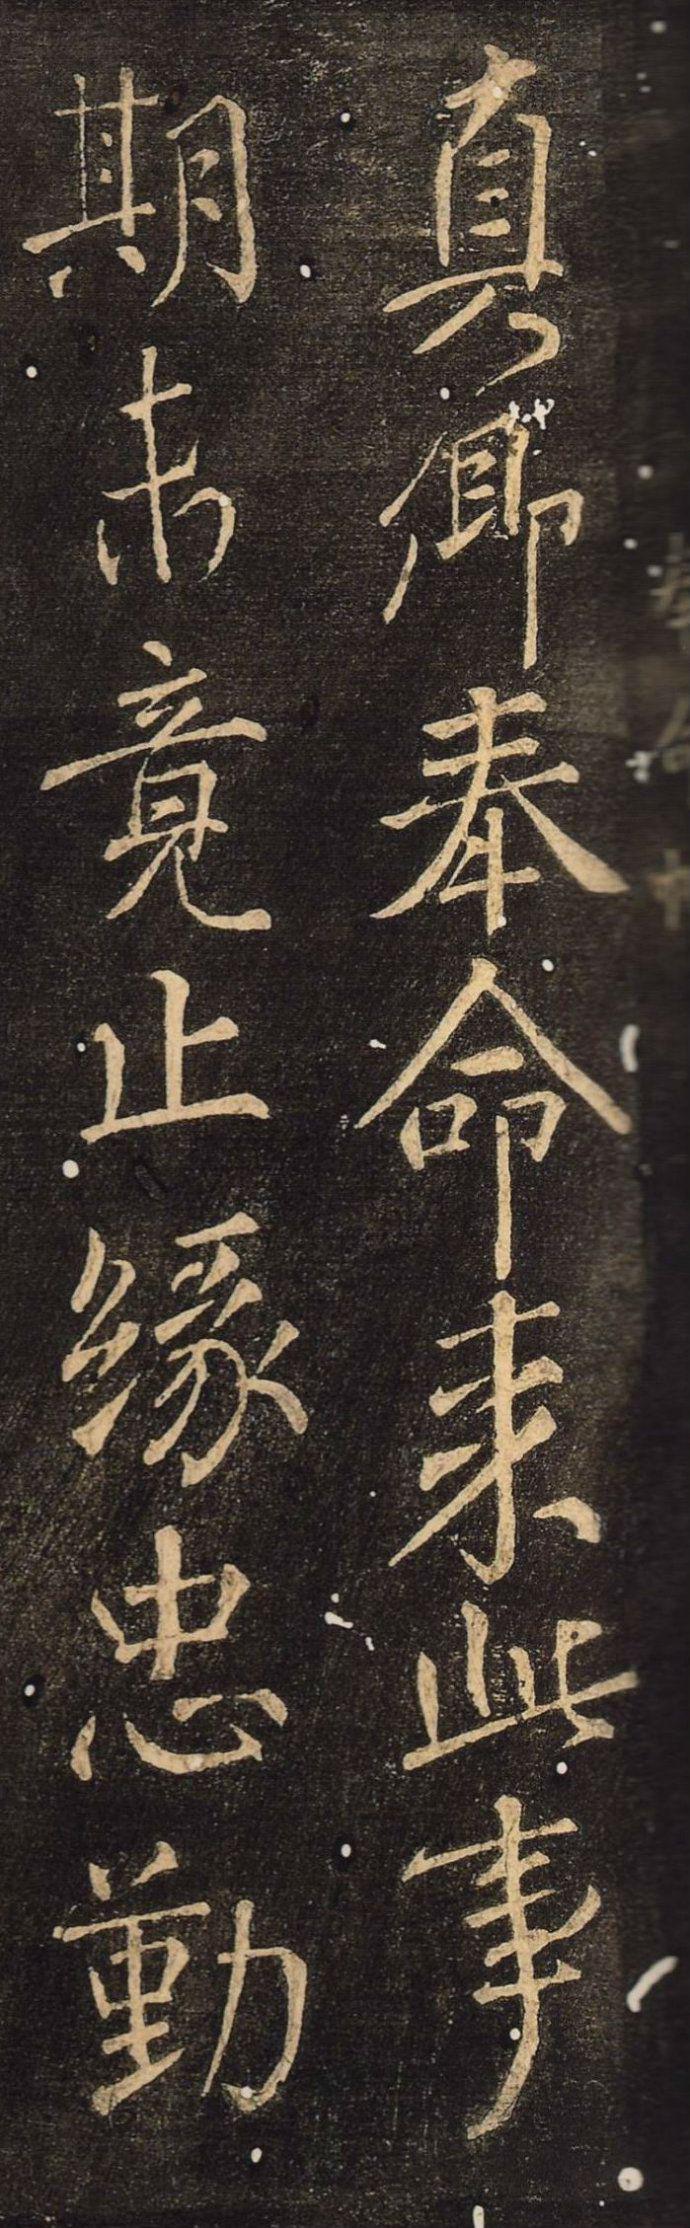 真卿奉命來此事
期未竟止緣忠勤
奉命帖